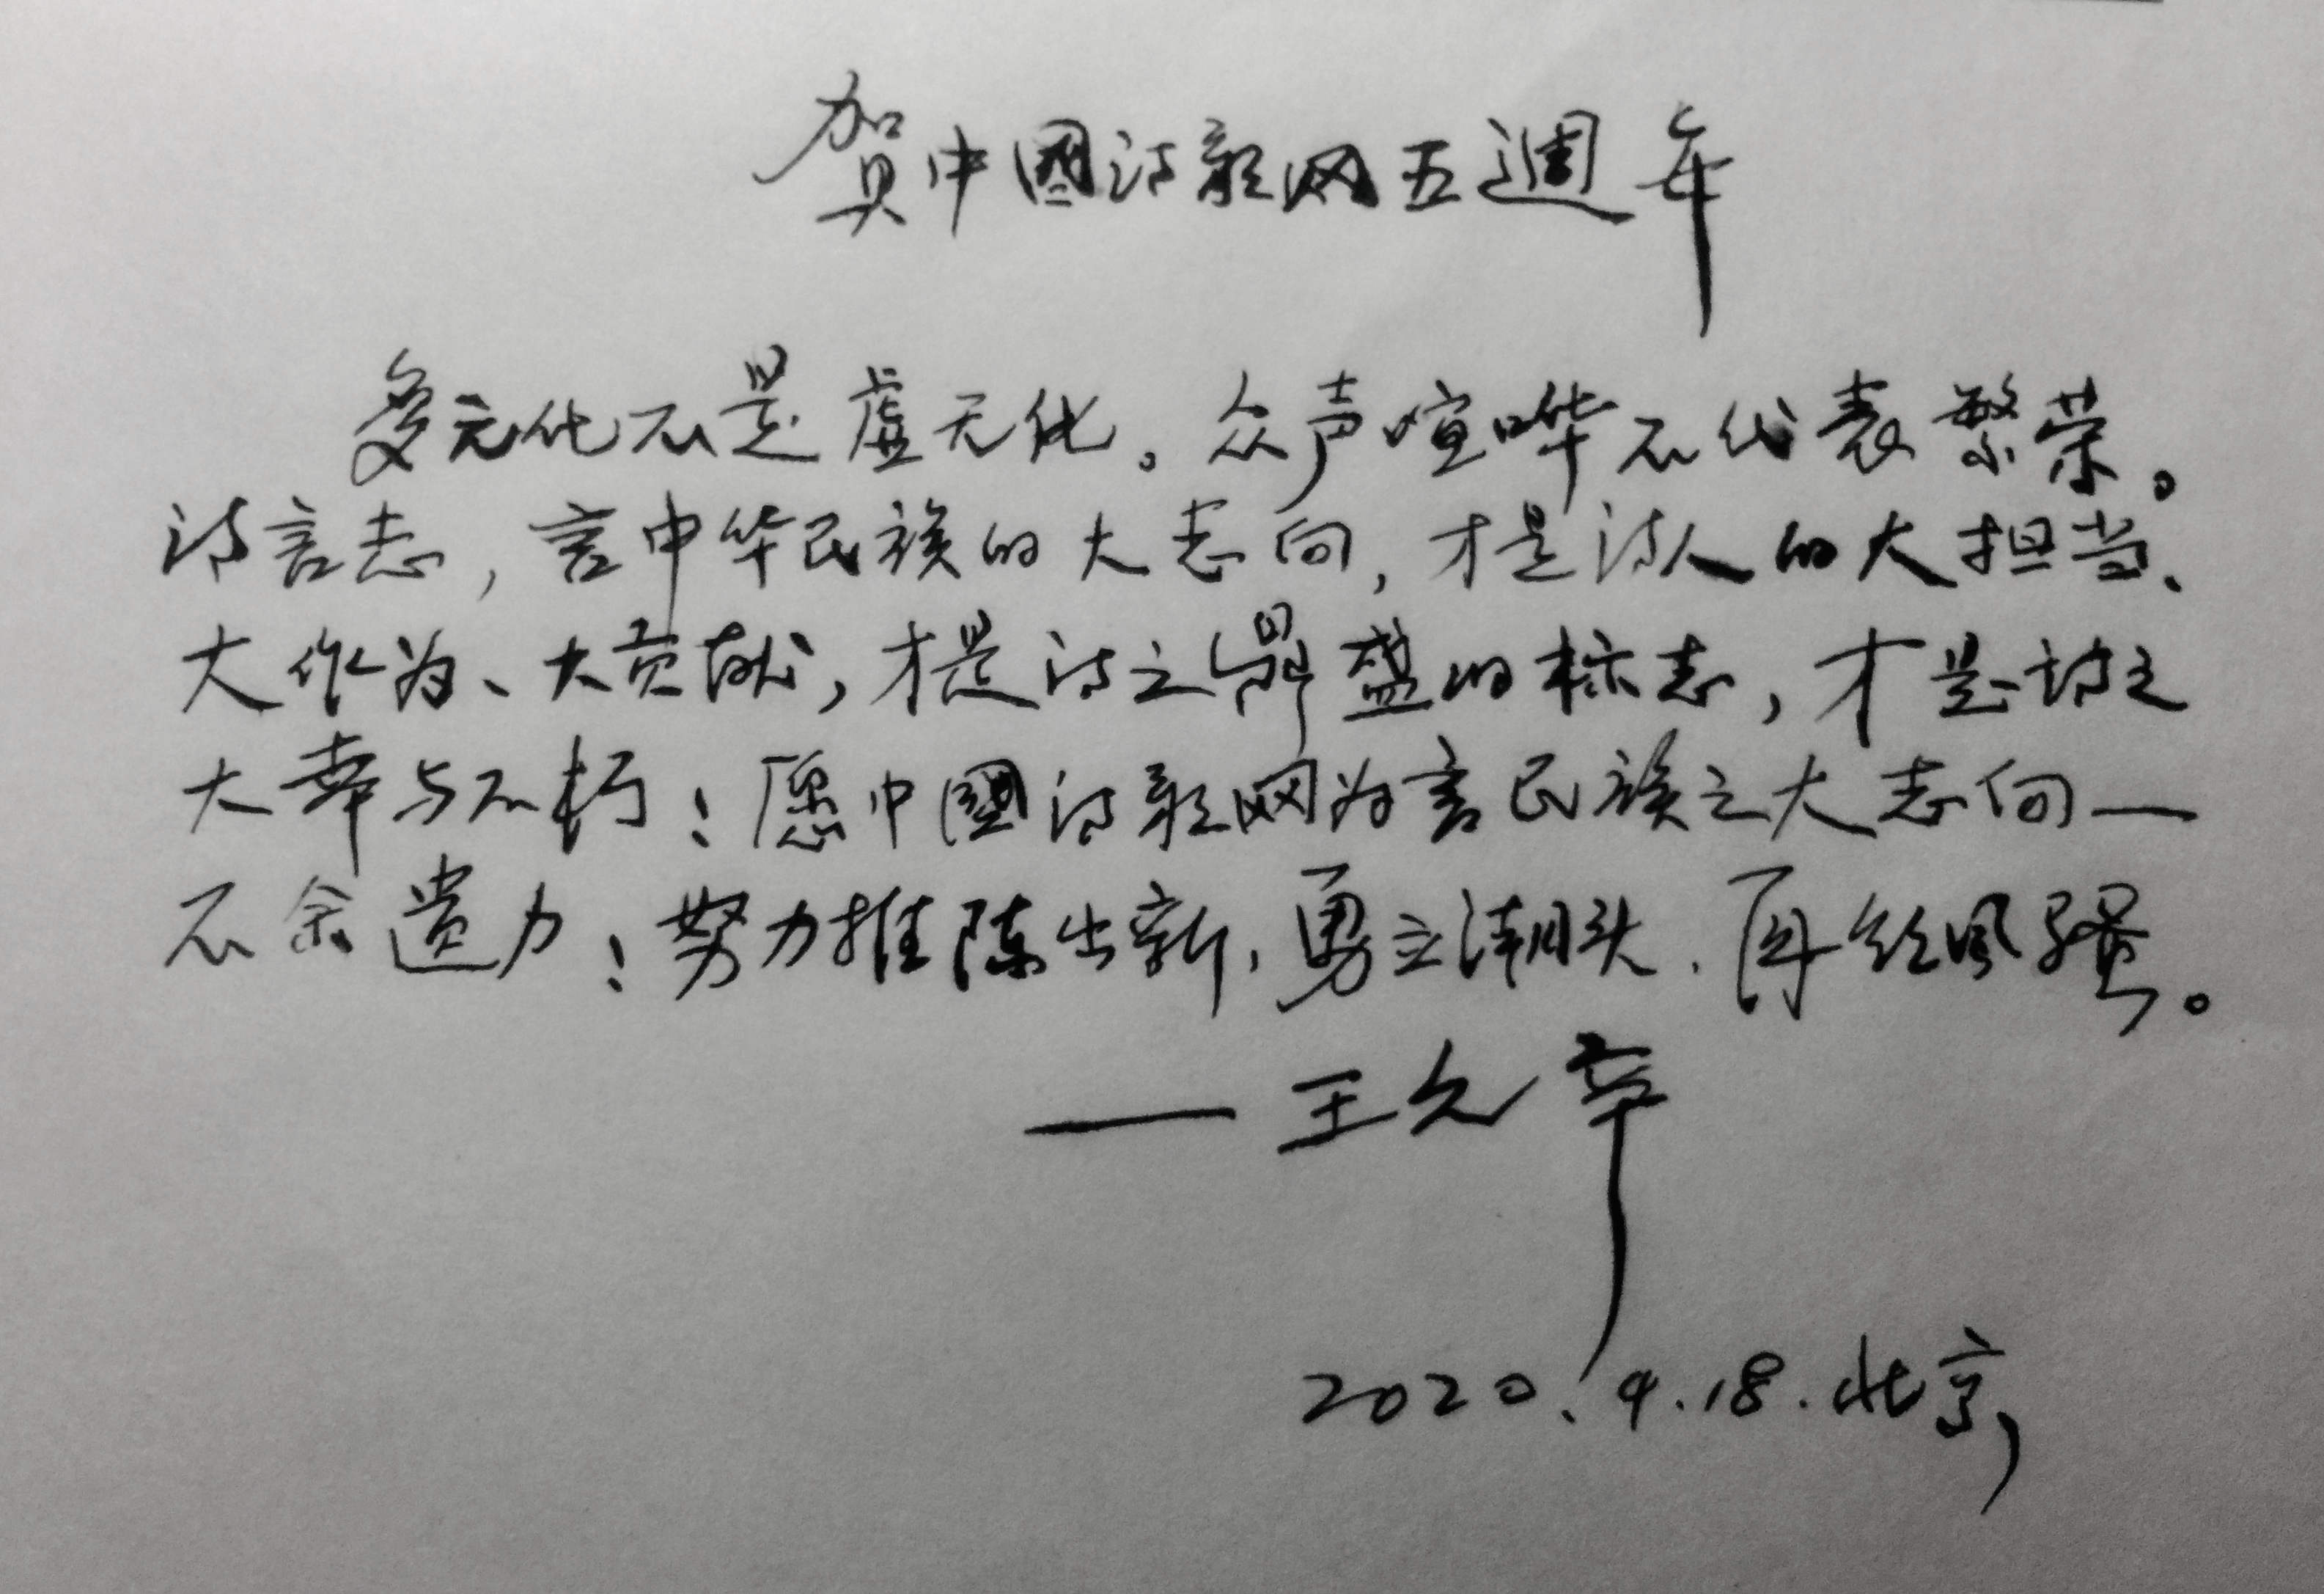 贺中國诗歌网五週年
多元化不是虚无化。众声喧哗不代表繁荣。
诗言志，言中华民族的大志向，才是诗人的大担当、
大作为、大贡献，才是诗之鼎盛的标志，才是诗之
大幸与不朽；愿中國诗歌网为言民族之大志向一
不余遗力；努力推陈出新，勇立潮头．再领风骚。
——王久辛
2020.4.18.北京